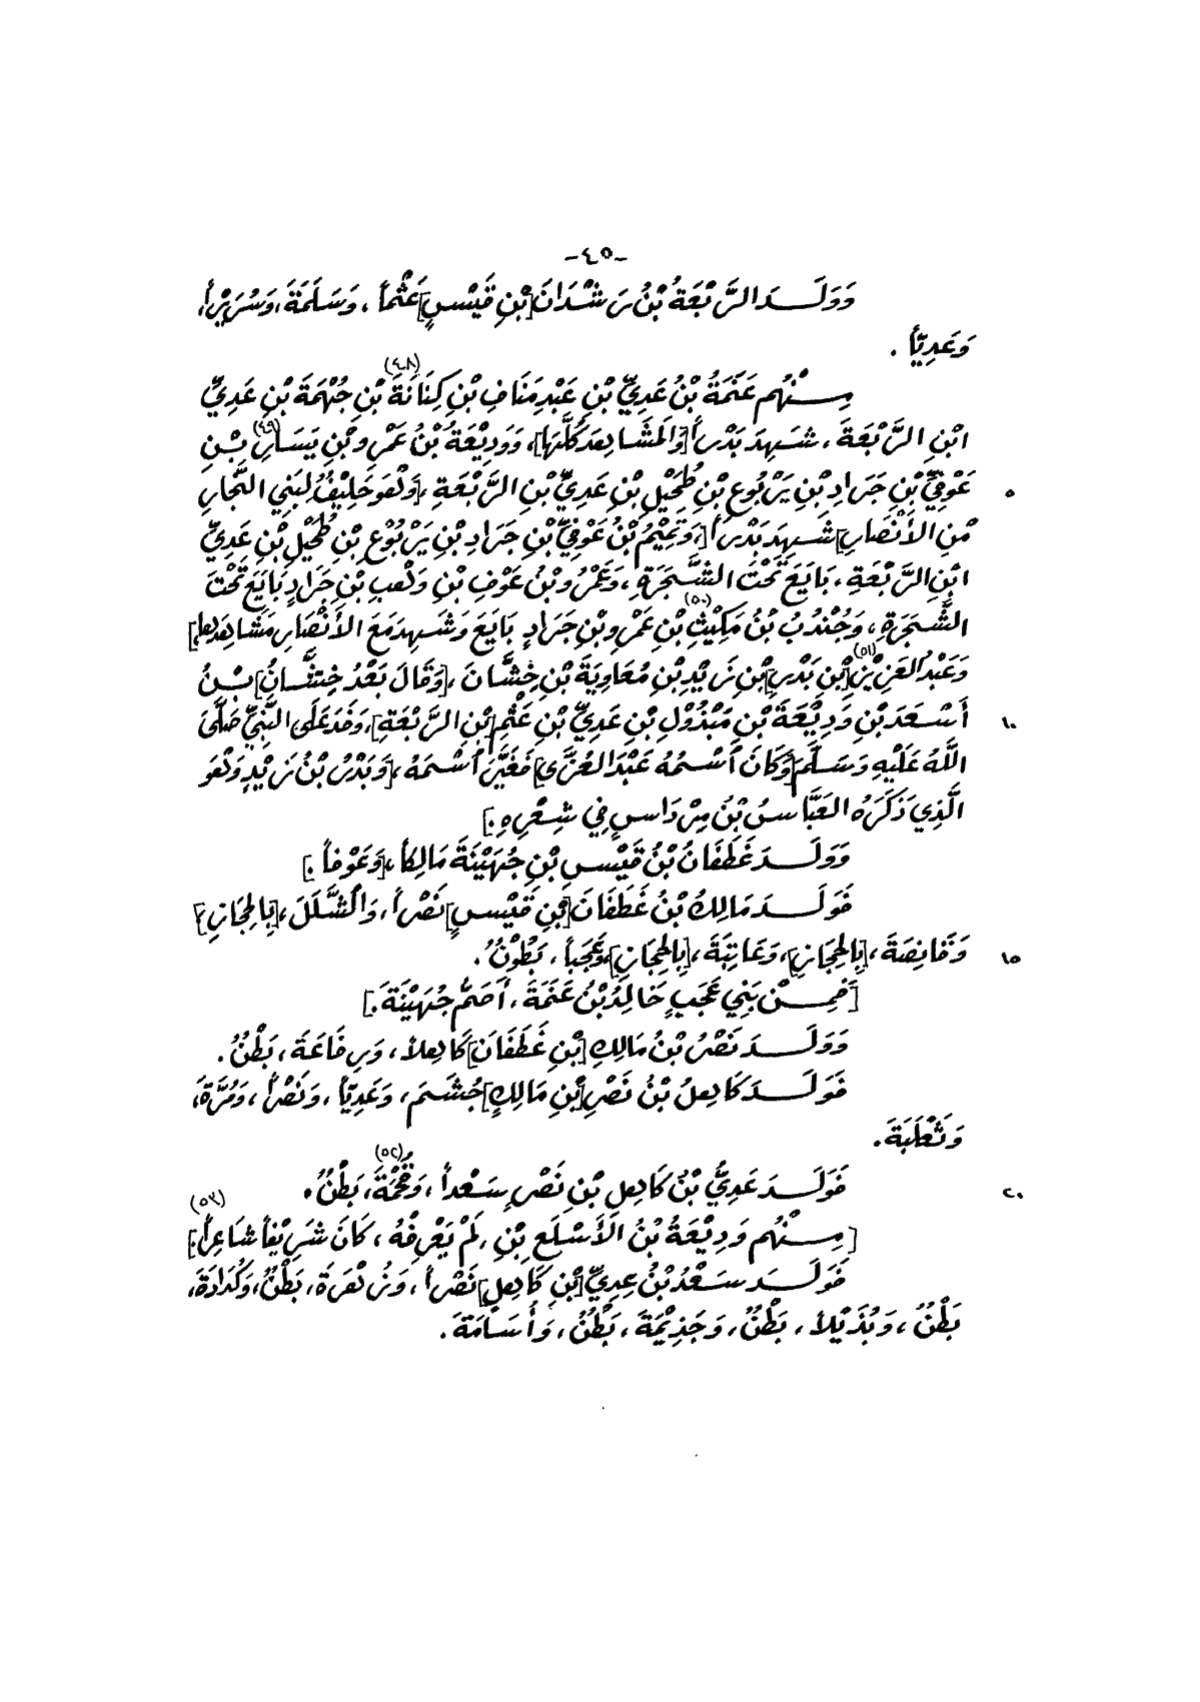 -٤٥-
وَوَلَـــدَ الرَّبْعَةُ بْنُ رَشْدَانَ [بْنِ قَيْسٍ] غَنْماً ، وَسَلَمَةَ ، وَسُرَيْراً ،
وَعَدِيّاً .
مِـــنْهُم عَنَمَةُ بْنُ عَدِيِّ بْنِ عَبْدِ مَنَافِ بْنِ كِنَانَةَ (٤٨) بْنِ جُهْمَةَ بْنِ عَدِيِّ
ابْنِ الرَّبْعَةَ ، شَـهِدَ بَدْراً [وَالمَشَاهِدَ كُلَّهَا] ، وَوَدِيْعَةُ بْنُ عَمْرِو بْنِ يَسَارِ (٤٩) بْـنِ
٥ عَوْفِيِّ بْنِ جَرَادِ بْنِ يَرْبُوعِ بْنِ طُحَيْلِ بْنِ عَدِيِّ بْنِ الرَّبْعَةِ ، [وَهُوَ حَلِيْفُ لِبَنِي النَّجَّارِ
مِّنِ الأَنْصَارِ] شَـهِدَ بَدْراً [، وَتَمِيْمُ بْنُ عَوْفِيِّ بْنِ جَرَادِ بْنِ يَرْبُوْعِ بْنِ طُحَيْلِ بْنِ عَدِيِّ
ابْنِ الرَّبْعَةِ ، بَايَعَ تَحْتَ الشَّجَرَةِ ، وَعَمْرُو بْنُ عَوْفِ بْنِ وَهْبِ بْنِ جَرَادٍ بَايَعَ تَحْتَ
الشَّجَرَةِ ، وَجُنْدُبُ بْنُ مَكِيْثِ (٥٠) بْنِ عَمْرِو بْنِ جَرَادٍ بَايَعَ وَشَـهِدَ مَعَ الأَنْصَارِ مَشَاهِدَهَا]
وَعَبْدُ العَزِيْزِ (٥١) [بْنِ بَدْرِ] بْنِ زَيْدِ بْنِ مُعَاوِيَةَ بْنِ خِشَّانَ ، [وَقَالَ بَعْدُ خِشَّـانُ] بْـنُ
١٠ أَسْـعَدَ بْنِ وَدِيْعَةَ بْنِ مَبْذُوْلِ بْنِ عَدِيِّ بْنِ غَنْمِ [بْنِ الرَّبْعَةِ] ، وَفَدَ عَلَى النَّبِيِّ صَلَّى
اللَّهُ عَلَيْهِ وَسَـلَّمَ [وَكَانَ اُسْـمُهُ عَبْدَ العُزَّى] فَغَيَّرَ اُسْمَهُ ، [وَبَدْرُ بْنُ زَيْدٍ وَهُوَ
الَّذِي ذَكَرَهُ العَبَّاسُ بْنُ مِرْدَاسٍ فِي شِعْرِهِ .]
وَوَلَـــدَ غَطَفَانُ بْنُ قَيْسِ بْنِ جُهَيْنَةَ مَالِكاً ، [وَعَوْفاً .]
فَوَلَـــدَ مَالِكُ بْنُ غَطَفَانَ [بْنِ قَيْسٍ] نَصْراً ، وَالشَّلَلَ ، [بِالحِجَازِ]
١٥ وَقَانِصَةَ ، [بِالحِجَازِ] ، وَعَاتِبَةَ ، [بِالحِجَازِ] ، وَعَجَباً ، بُطُوْنٌ .
[فَمِـــنْ بَنِي عَجَبٍ خَالِدُ بْنُ عَنَمَةَ ، أَصَمُّ جُهَيْنَةَ .]
وَوَلَـــدَ نَصْرُ بْنُ مَالِكِ [بْنِ غَطَفَانَ] كَاهِلاً ، وَرِفَاعَةَ ، بَطْنٌ .
فَوَلَـــدَ كَاهِلُ بْنُ نَصْرِ [بْنِ مَالِكٍ] جُشَمَ ، وَعَدِيّاً ، وَنَصْراً ، وَمُرَّةَ ،
وَثَعْلَبَةَ .
٢٠ فَوَلَـــدَ عَدِيُّ بْنُ كَاهِلِ بْنِ نَصْرٍ سَعْداً ، وَقُحْمَةَ (٥٢) ، بَطْنٌ .
[مِـــنْهُم وَدِيْعَةُ بْنُ الأَسْلَعِ بْنِ ، لَمْ يَعْرِفْهُ ، كَانَ شَرِيْفاً شَاعِراً .] (٥٣)
فَوَلَـــدَ سَعْدُ بْنُ عَدِيِّ [بْنِ كَاهِلٍ] نَصْراً ، وَزُهْرَةَ ، بَطْنٌ ، وَكُدَادَةَ ،
بَطْنٌ ، وَبُذَيْلاً ، بَطْنٌ ، وَجَذِيْمَةَ ، بَطْنٌ ، وَأُسَامَةَ .